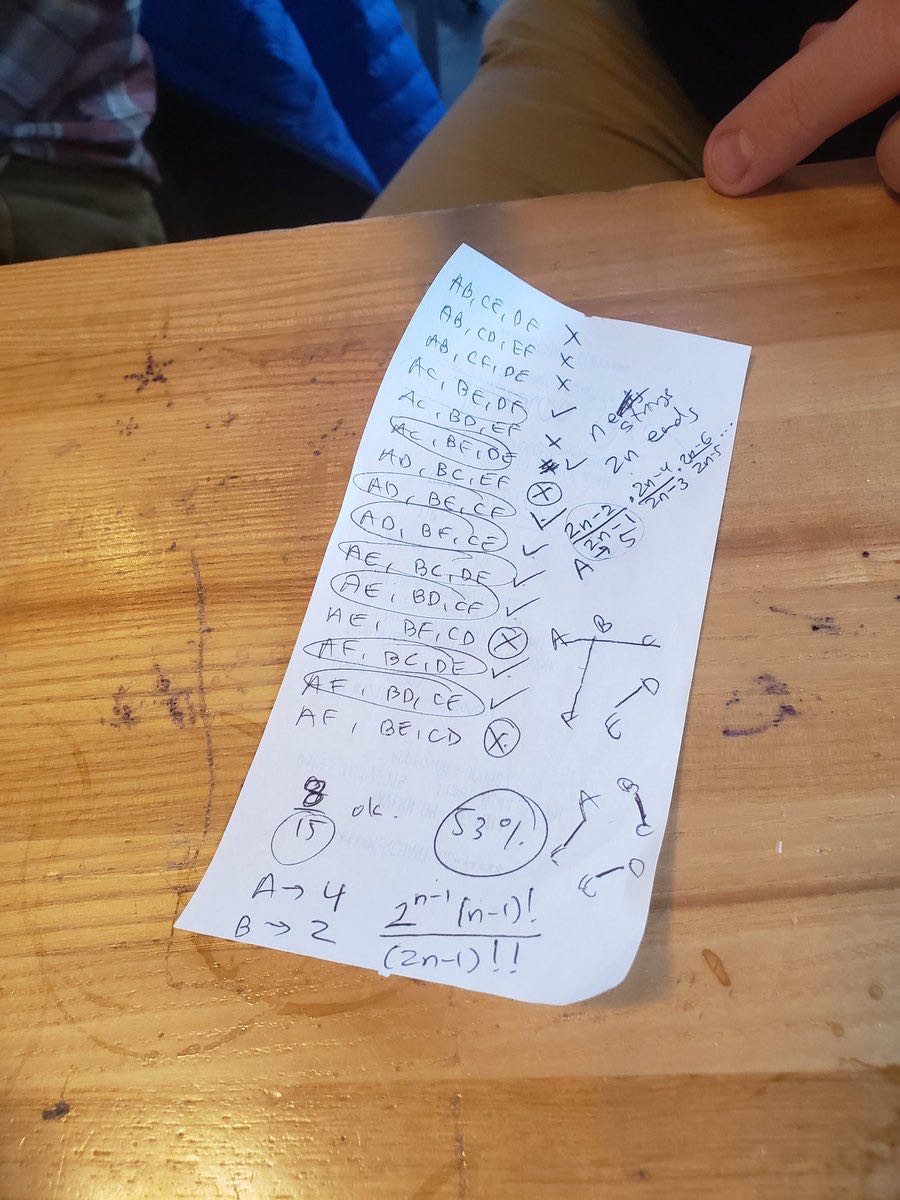 AB, CE, DF X
AB, CD, EF X
AB, CF, DE X
AC, BE, DF ✓
AC, BD, EF X
AC, BF, DE ✓
AD, BC, EF X
AD, BE, CF ✓
AD, BF, CE ✓
AE, BC, DF ✓
AE, BD, CF ✓
AE, BF, CD X
AF, BC, DE ✓
AF, BD, CE ✓
AF, BE, CD X
n strings
2n ends
2n-2/2n-1 · 2n-4/2n-3 · 2n-6/2n-5 ...
A 5
A B C
D
E
8/15 ok.
53%!
A B
D
A → 4
B → 2
2^(n-1) (n-1)!/(2n-1)!!